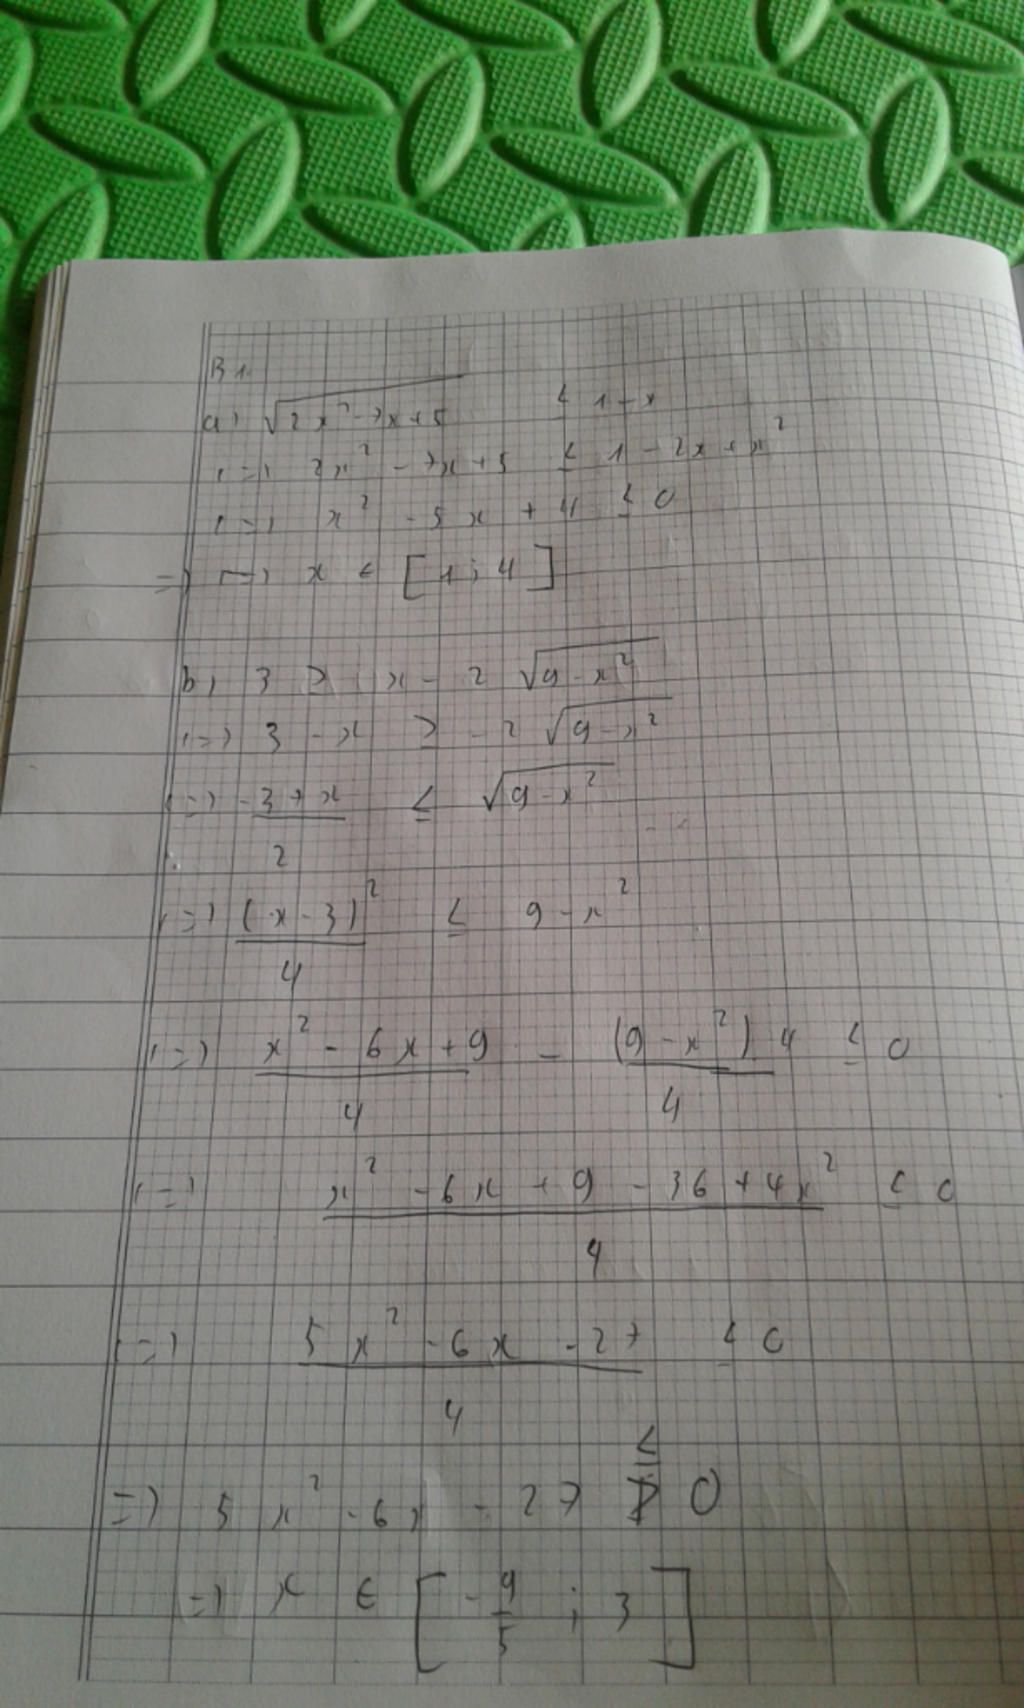 B1.
a) √(2x² - 7x + 5) ≤ 1 - x
(=) 2x² - 7x + 5 ≤ 1 - 2x + x²
(=) x² - 5x + 4 ≤ 0
=) x ∈ [1; 4]
b) 3 ≥ x - 2√(9 - x²)
(=) 3 - x ≥ -2√(9 - x²)
(=) (-3 + x)/2 ≤ √(9 - x²)
(=) (x - 3)²/4 ≤ 9 - x²
(=) (x² - 6x + 9)/4 - (9 - x²)4/4 ≤ 0
(=) (x² - 6x + 9 - 36 + 4x²)/4 ≤ 0
(=) (5x² - 6x - 27)/4 ≤ 0
=) 5x² - 6x - 27 ≤ 0
=) x ∈ [-9/5; 3]